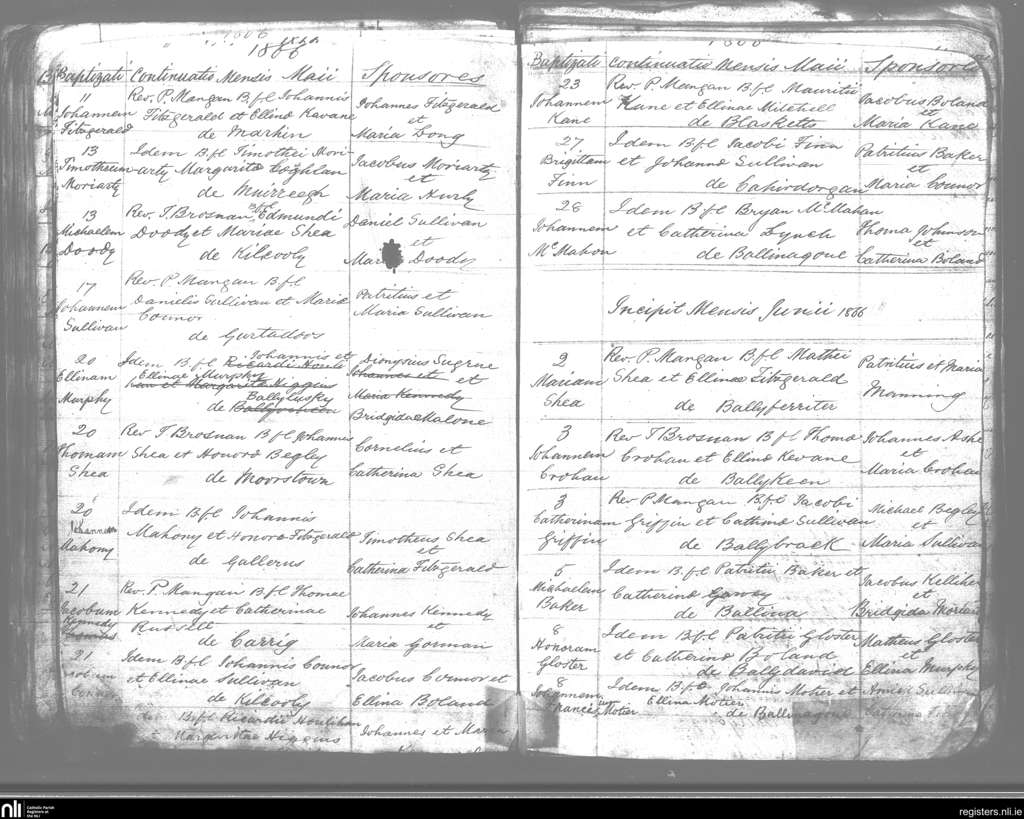 1866
Baptizati Continuatio Mensis Maii Sponsores
11 Rev. P. Mangan B.f.l Johannis
Johannem Fitzgerald et Ellinæ Kavane Johannes Fitzgerald
Fitzgerald de Markin et
Maria Long
13 Idem B.f.l Timothei Mori-
Timotheum arty Margaritæ Loghlan Jacobus Moriarty
Moriarty de Muirreegh et
Maria Hurly
13 Rev. T. Brosnan B.f.l Edmundi Daniel Sullivan
Michaelem Doody et Mariae Shea et
Doody de Kilcooly Doody
17 Rev. P. Mangan B.f.l
Johannem Danielis Sullivan et Mariæ Patritius et
Sullivan Connor Maria Sullivan
de Gurtadoos
20 Idem B.f.l Ricardi Houli Johannis et Dionysius Sugrue
Ellinam Ellinae Murphy Johannes et et
Murphy han et Margaritæ Higgins Maria Kennedy
Ballylusky Bridgida Malone
de
20 Rev T Brosnan B.f.l Johannis
Thomam Shea et Honoræ Begley Cornelius et
Shea de Moorstown Catherina Shea
20 Idem B.f.l Johannis
Johannem Mahony et Honoræ Fitzgerald Timotheus Shea
Mahony et
de Gallerus Catherina Fitzgerald
21 Rev. P. Mangan B.f.l Thomae
Jacobum Kennedy et Catherinae Johannes Kennedy
Kennedy Russell et
de Carrig Maria Gorman
21 Idem B.f.l Johannis Connor
et Ellinae Sullivan Jacobus Connor et
de Kilcooly Ellina Boland
B.f.l Ricardi Houlihan
et Margaritae Higgins Johannes et Maria
Baptizati Continuatio Mensis Maii Sponsores
23 Rev. P. Mangan B.f.l Mauritii
Johannem Kane et Ellinae Mitchell Jacobus Boland
Kane de Blasketts et
Maria Kane
27 Idem B.f.l Jacobi Finn Patritius Baker
Brigittam et Johannæ Sullivan et
Finn de Cahirdorgan Maria Connor
28 Idem B.f.l Bryan McMahan
Johannem et Catherina Lynch Thoma Johnson
McMahon de Ballinagoul et
Catherina Boland
Incipit Mensis Junii 1866
2 Rev. P. Mangan B.f.l Mathei Patritius et Maria
Mariam Shea et Ellinæ Fitzgerald Manning
Shea de Ballyferriter
3 Rev T Brosnan B.f.l Thomæ Johannes Ashe
Johannem Crohan et Ellinæ Kevane et
Crohan de Ballykeen Maria Crohan
3 Rev P Mangan B.f.l Jacobi Michael Begley
Catherinam Griffin et Cathinæ Sullivan et
Griffin de Ballybrack Maria Sullivan
5 Idem B.f.l Patritii Baker et Jacobus Kelliher
Michaelem Catherinæ et
Baker de Baltovia Bridgida
8 Idem B.f.l Patritii Gloster Matheus Gloster
Honoram et Catherinæ Boland et
Gloster de Ballydavid Ellina Murphy
8 Idem B.f.l Johannis Motier et
Johannem Ellina Motier
Motier de Ballinagoul
nli Catholic Parish Registers at the NLI
registers.nli.ie